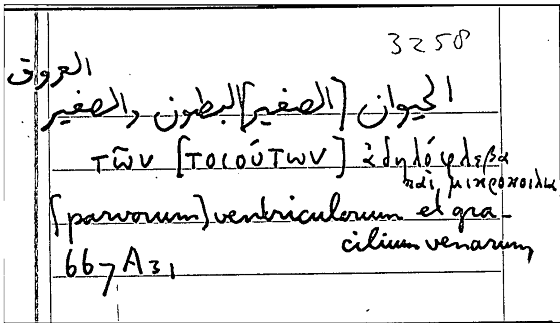 3258
الحيوان [الصغير] البطون والصغير
العروق
τῶν [τοιούτων] ἀδηλόφλεβα
καὶ μικροκοιλια
[parvorum] ventriculorum et gra-
cilium venarum
667 A 31